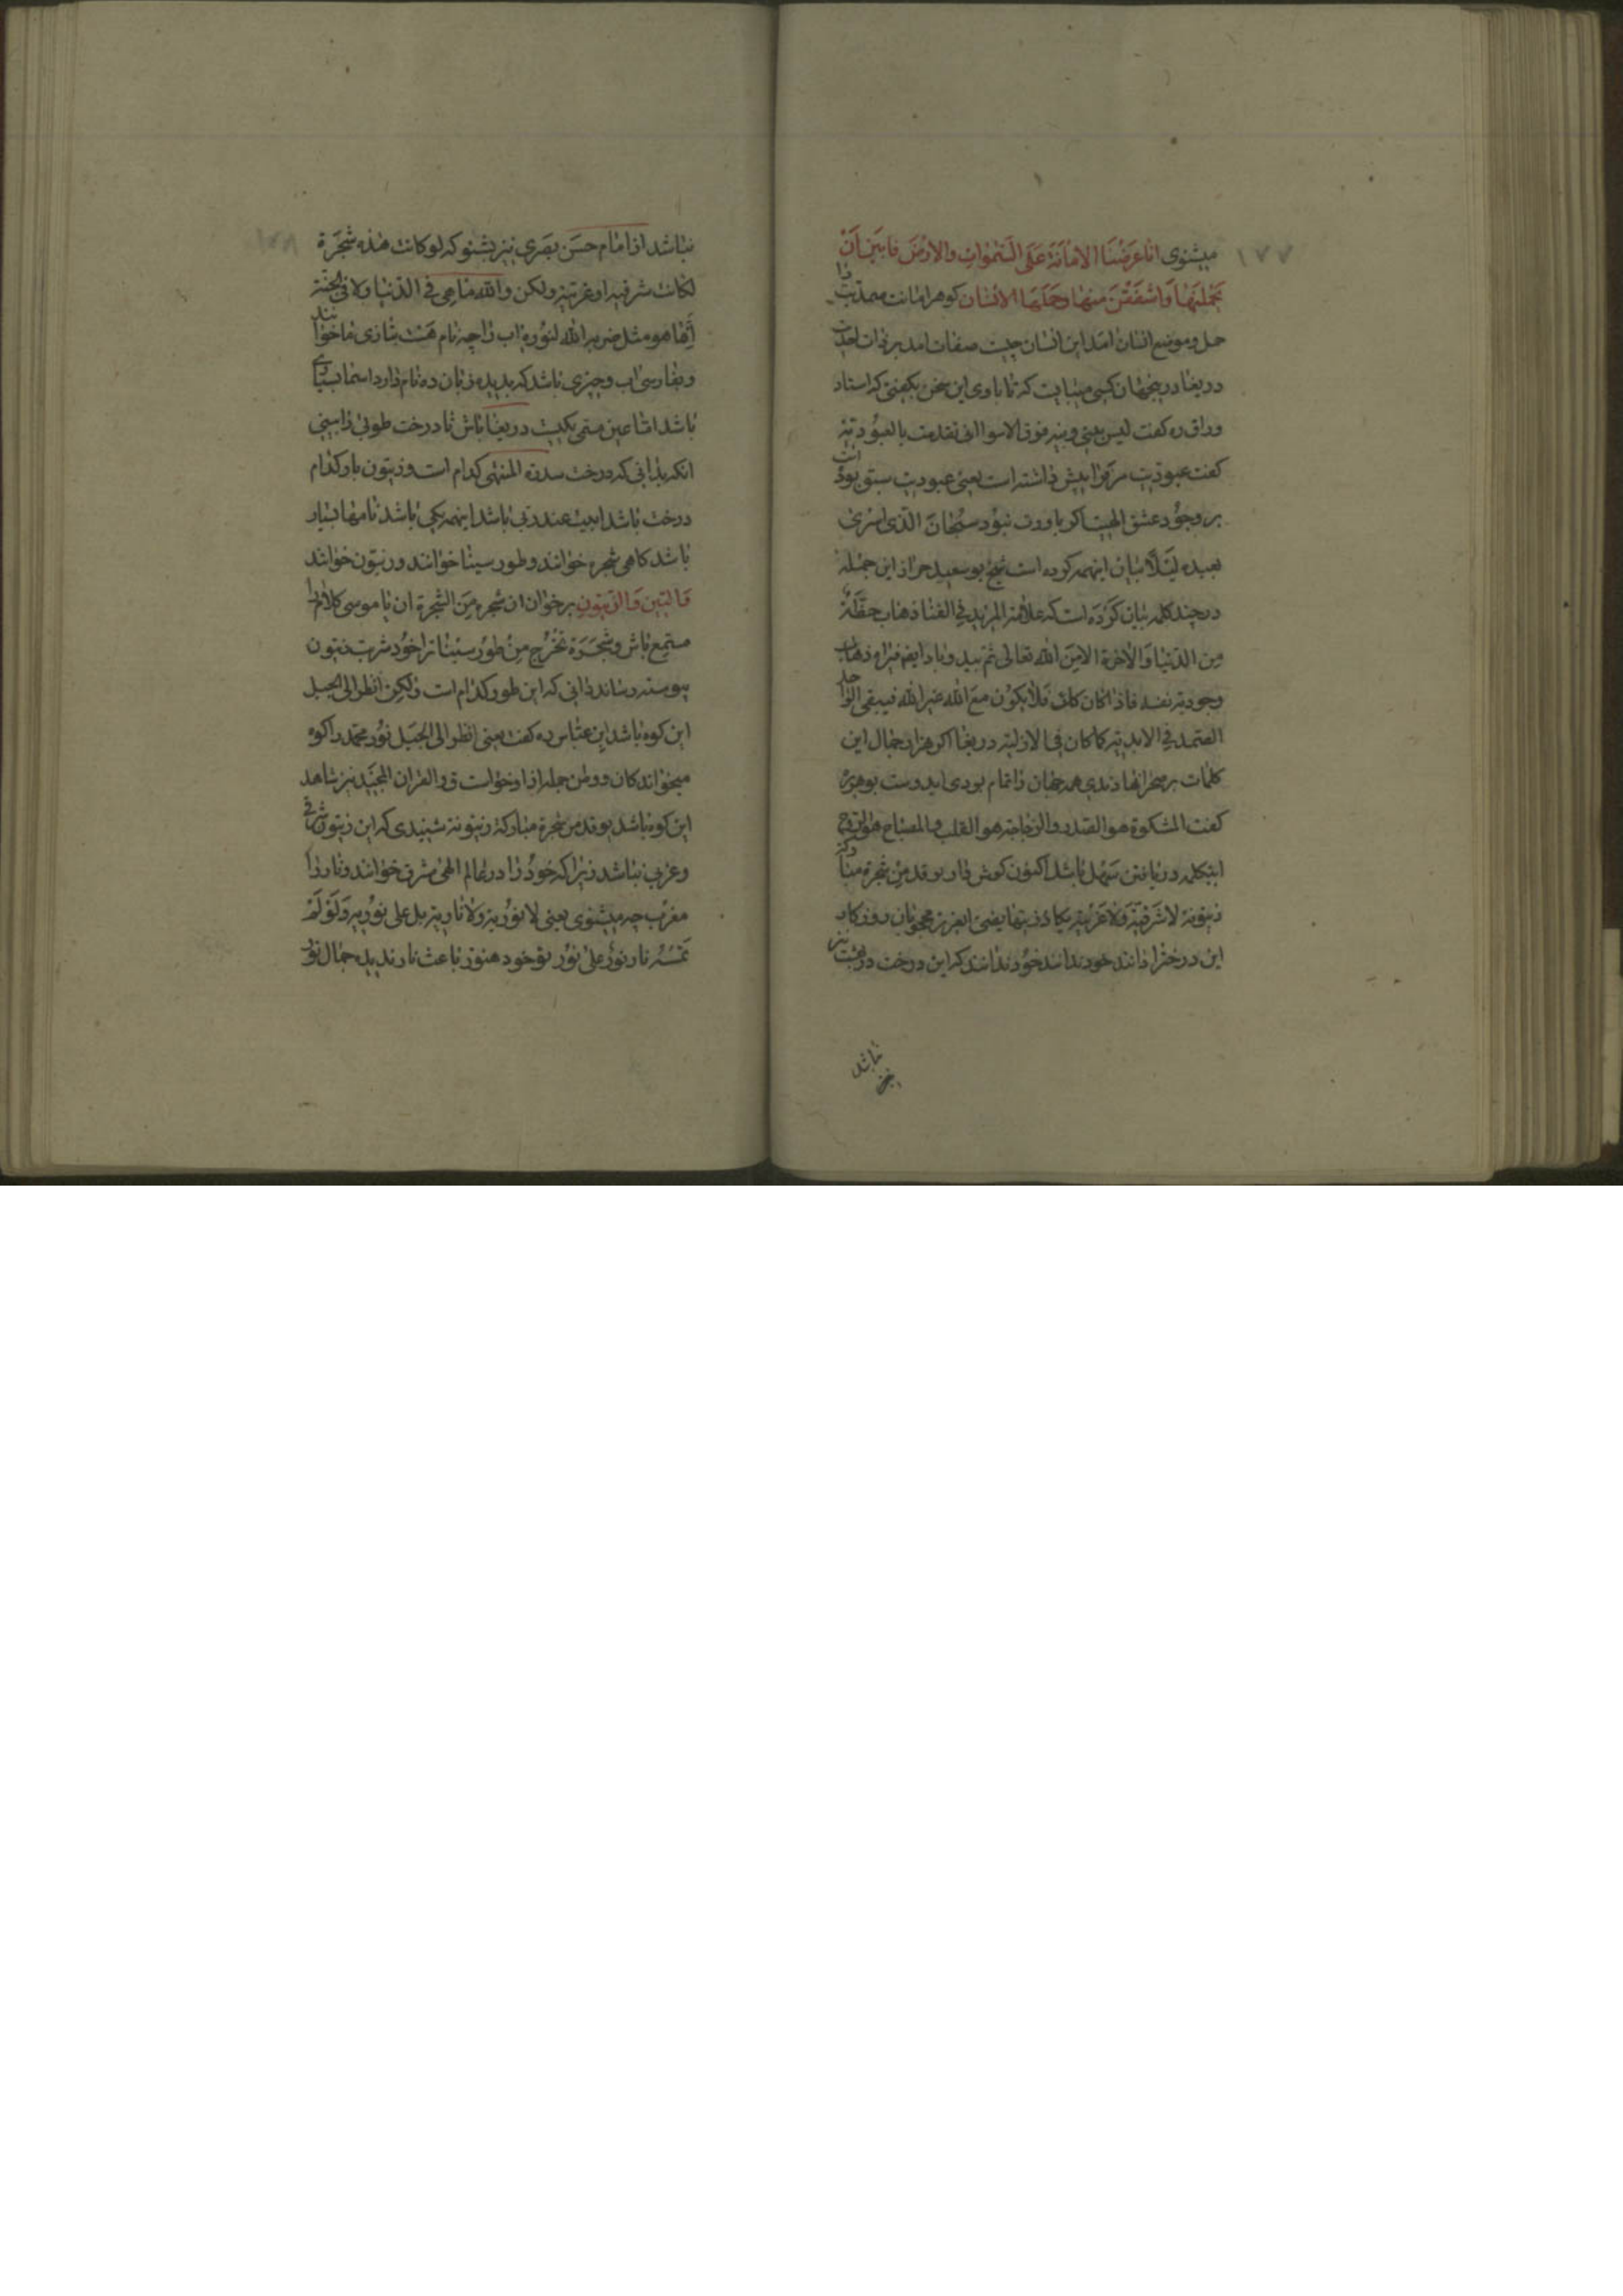 ۱۷۷
میشنوی انا عرضنا الامانة علی السموات والارض فابین ان
یحملنها واشفقن منها وحملها الانسان کوهر امانت صمدیت را
محل وموضع انسان امد این انسان چیست صفات امد بر ذات احدیت
دریغا در ینجهان کسی میبایست که تا با وی این سخن بکفتی که استاد
وراق ره کفت لیس بینی وبینه فرق الا سوا انی تقدمت بالعبودیة
کفت عبودیت مرا فرا پیش داشته است یعنی عبودیت سبق بوده است
بر وجود عشق الهیت اکر باورت نبود سبحان الذی اسری
بعبده لیلا بیان اینهمه کرده است شیخ بوسعید خراز این جمله
در چند کلمه بیان کرده است که علامة المرید فی الفنا ذهاب حظه
من الدنیا والاخرة الا من الله تعالی ثم یبد وباد ایضم فیراه ذهاب
وجودیة نفسه فاذا کان کذلک فلا یکون مع الله غیر الله فیبقی الواحد
الصمد فی الابدیة کما کان فی الازلیة دریغا اکر هزار جمال این
کلمات بر صحرا نهادندی همه جهان را تمام بودی ای دوست بو هریره
کفت المشکوة هو الصدر والزجاجة هو القلب والمصباح هو الروح
اینکلمه دریافتن سهل باشد اکنون کوش دار یوقد من شجرة مبارکة
زیتونة لا شرقیة ولا غربیة یکاد زیتها یضیئ ایعزیز محجوبان روزکار
این درخت را دانند خود ندانند خود ندانند که این درخت در بهشت نیز
نباشد
۱۷۸
نباشد از امام حسن بصری نیز بشنو که لو کانت هذه شجرة
لکانت شرقیه او غربیة ولکن والله ما هی فی الدنیا ولا فی الجنة
انما هو مثل ضربه الله لنوره اب را چه نام هست بتازی ما خوانند
وبفارسی اب وچیزی باشد که بدیده زبان ده نام دارد اسما بسیار
باشد اما عین مسمی یکیست دریغا باش تا درخت طوبی را بینی
انکه بدانی که درخت سدرة المنتهی کدام است وزیتون بار کدام
درخت باشد ابیت عند ربی باشد اینهمه یکی باشد نامها بسیار
باشد کاهی شجره خوانند وطور سینا خوانند وزیتون خوانند
والتین والزیتون برخوان ان شجره من الشجرة ان یا موسی کلام را
مستمع باش وشجرة تخرج من طور سیناء ترا خود شربت زیتون
پیوسته رساند دانی که این طور کدام است ولکن انظر الی الجبل
این کوه باشد ابن عباس ره کفت یعنی انظر الی الجبل نور محمد را کوه
میخواند کان ووطن جمله را از اوخواست ق والقران المجید نیز شاهد
این کوه باشد یوقد من شجرة مبارکة زیتونة شنیدی که این زیتون شرقی
وغربی نباشد زیرا که خود را در عالم الهی مشرق خوانند ونار را
مغرب چه میشنوی یعنی لا نوریة ولا ناریة بل علی نوریة ولو لم
تمسسه نار نور علی نور تو خود هنوز باعث نار ندیده جمال نور